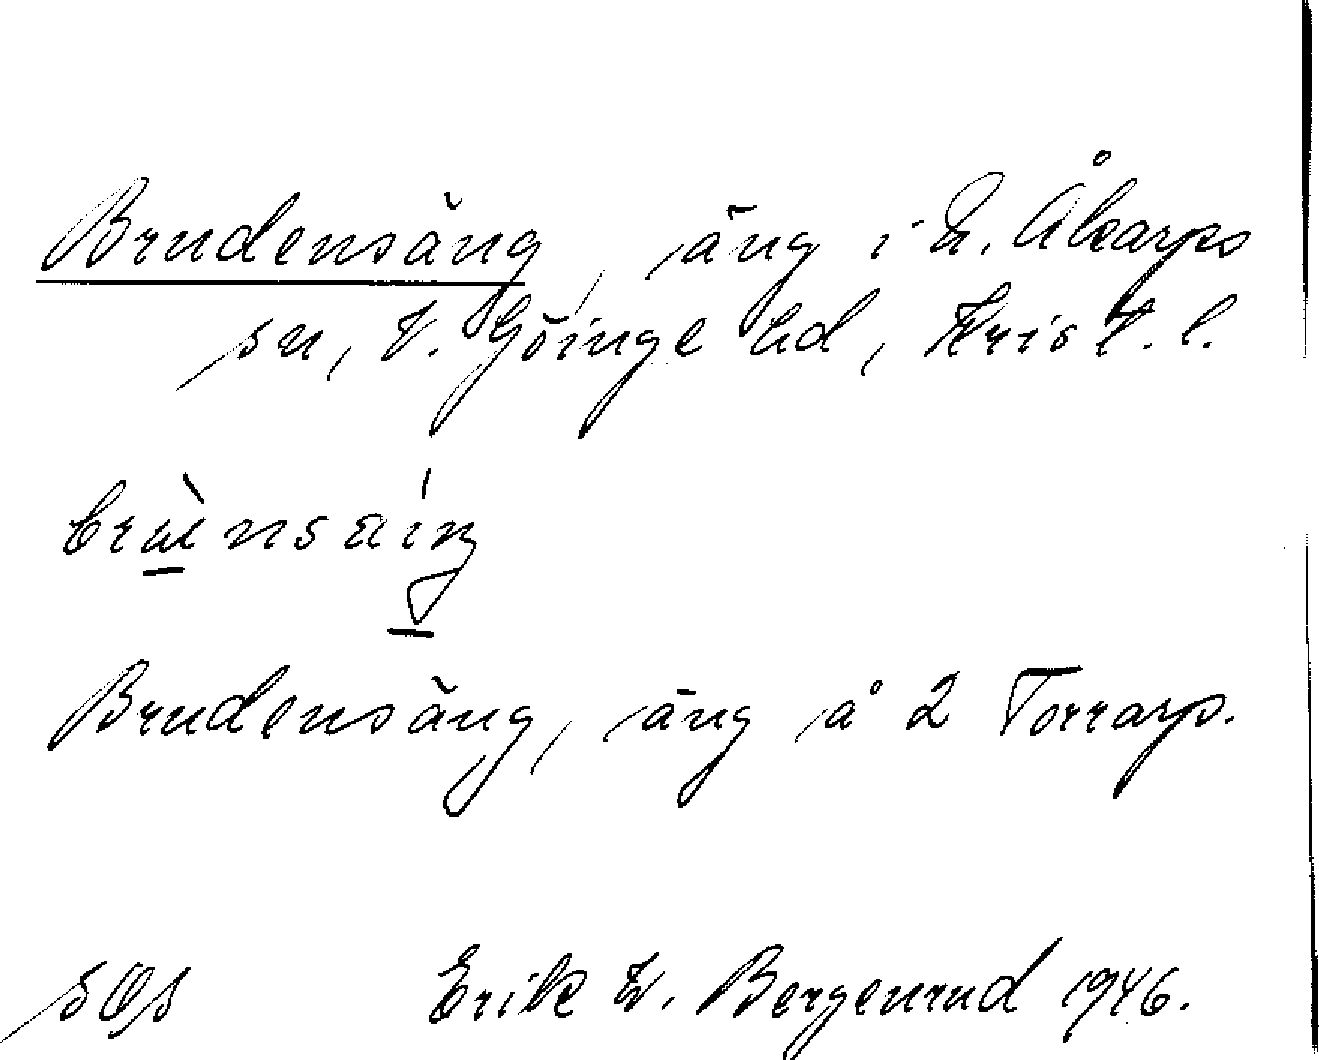 Brudensäng, äng i N. Åkarps
sn, V. Göinge hd, Krist. l.
Brudensäng, äng å 2 Torrarp.
Erik W. Bergenrud 1946.